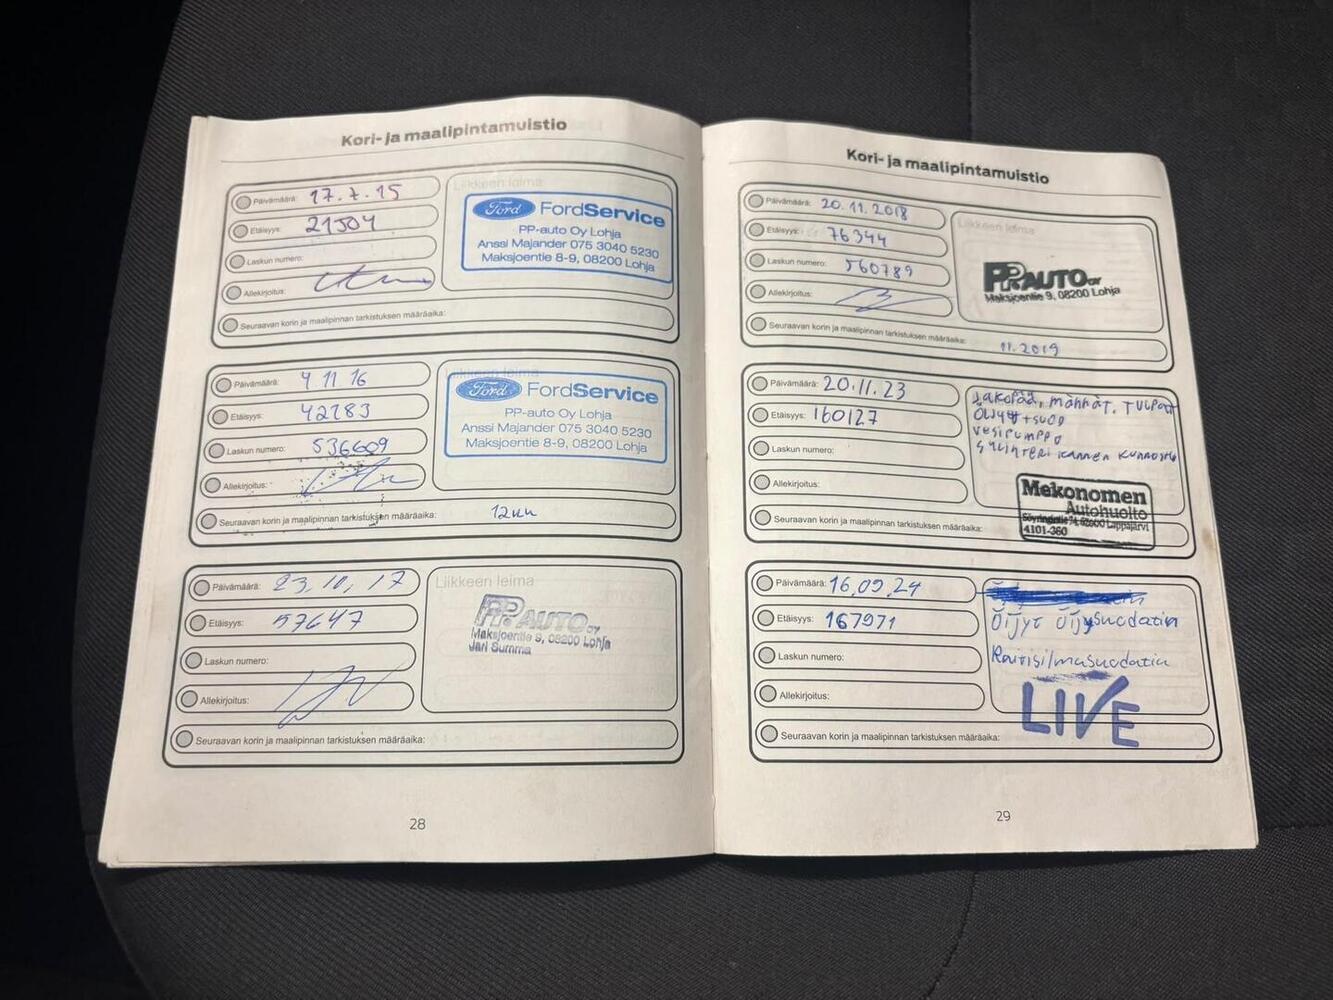 Kori- ja maalipintamuistio
Päivämäärä: 17.7.15
Etäisyys: 21504
Laskun numero:
Allekirjoitus:
Seuraavan korin ja maalipinnan tarkistuksen määräaika:
Liikkeen leima
Ford FordService
PP-auto Oy Lohja
Anssi Majander 075 3040 5230
Maksjoentie 8-9, 08200 Lohja
Päivämäärä: 4 11 16
Etäisyys: 42783
Laskun numero: 536609
Allekirjoitus:
Seuraavan korin ja maalipinnan tarkistuksen määräaika: 12kk
Liikkeen leima
Ford FordService
PP-auto Oy Lohja
Anssi Majander 075 3040 5230
Maksjoentie 8-9, 08200 Lohja
Päivämäärä: 23.10.17
Etäisyys: 57647
Laskun numero:
Allekirjoitus:
Seuraavan korin ja maalipinnan tarkistuksen määräaika:
Liikkeen leima
PP.AUTO OY
Maksjoentie 9, 08200 Lohja
Jari Summa
28
Kori- ja maalipintamuistio
Päivämäärä: 20.11.2018
Etäisyys: 76344
Laskun numero: 560789
Allekirjoitus:
Seuraavan korin ja maalipinnan tarkistuksen määräaika: 11.2019
Liikkeen leima
PP.AUTO OY
Maksjoentie 9, 08200 Lohja
Päivämäärä: 20.11.23
Etäisyys: 160127
Laskun numero:
Allekirjoitus:
Seuraavan korin ja maalipinnan tarkistuksen määräaika:
Jakopää, mähkät, TULPAT
ÖLJYT+SUOD
VESIPUMPPU
SYLINTERI KANNEN KUNNOSTUS
Mekonomen
Autohuolto
Söyringintie 74, 62600 Lappajärvi
4101-360
Päivämäärä: 16.09.24
Etäisyys: 167971
Laskun numero:
Allekirjoitus:
Seuraavan korin ja maalipinnan tarkistuksen määräaika:
Öljyt öljysuodatin
Raitisilmasuodatin
LIVE
29